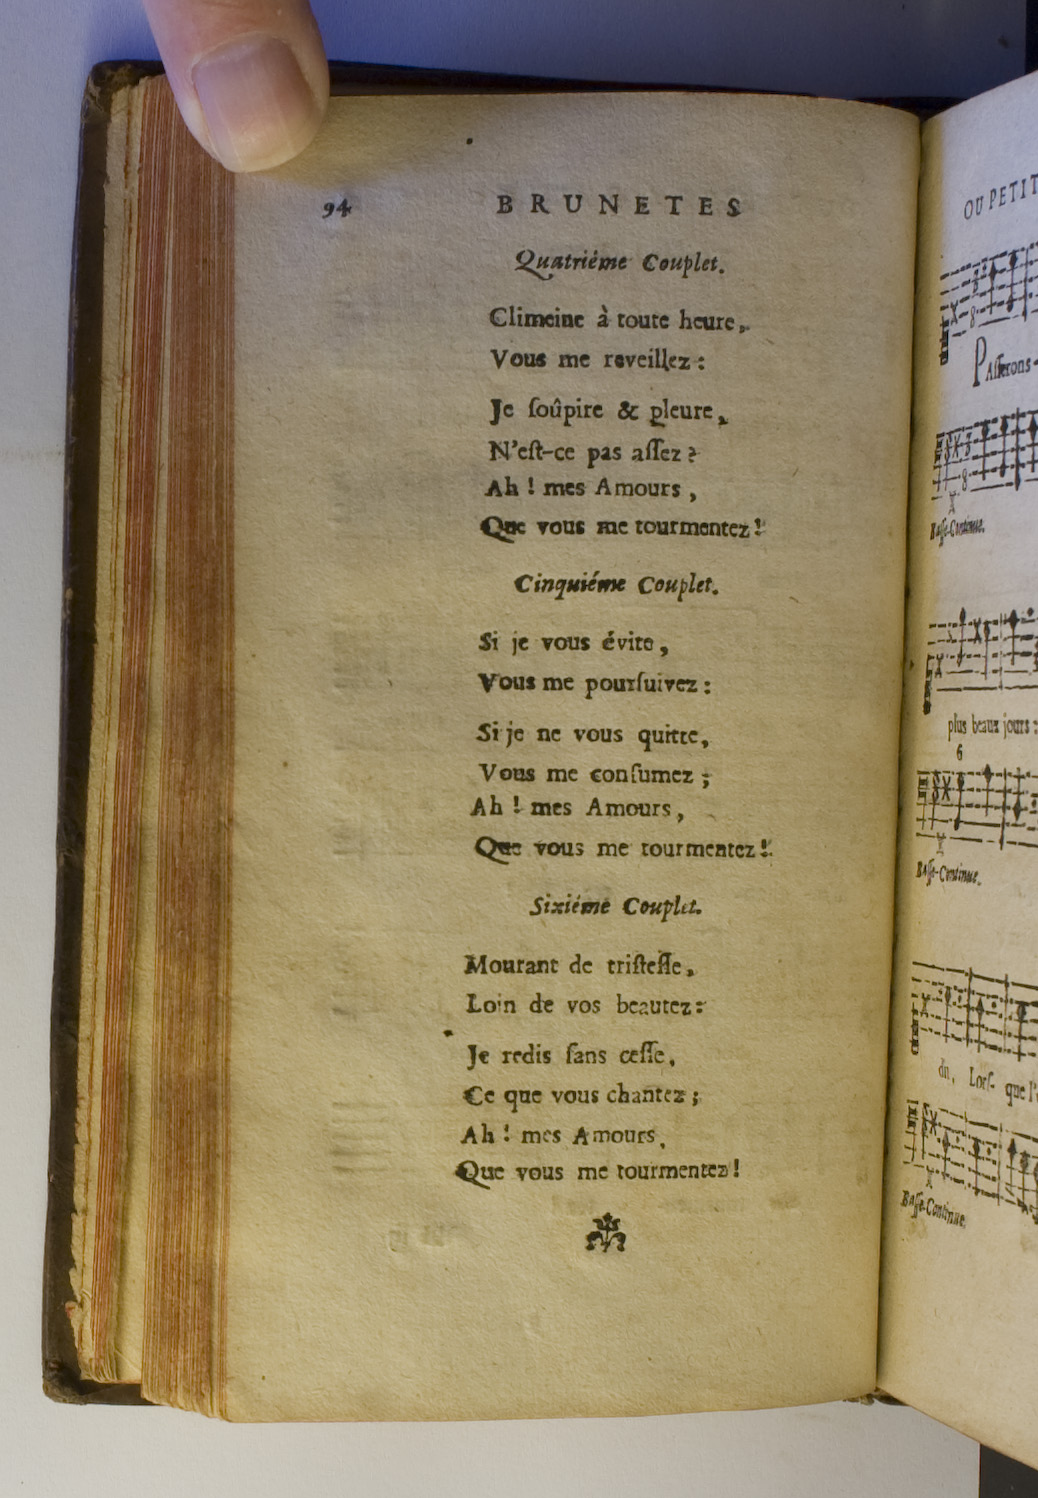 94 BRUNETES
Quatriéme Couplet.
Climeine à toute heure,
Vous me reveillez :
Je ſoûpire & pleure,
N'eſt-ce pas aſſez ?
Ah ! mes Amours,
Que vous me tourmentez !
Cinquiéme Couplet.
Si je vous évite,
Vous me pourſuivez :
Si je ne vous quitte,
Vous me conſumez ;
Ah ! mes Amours,
Que vous me tourmentez !
Sixiéme Couplet.
Mourant de triſteſſe,
Loin de vos beautez :
Je redis ſans ceſſe,
Ce que vous chantez ;
Ah ! mes Amours,
Que vous me tourmentez !
OU PETIT
PAſſerons-
Baſſe-Continue.
plus beaux jours :
6
Baſſe-Continue.
du, Lorſ- que l'
Baſſe-Continue.